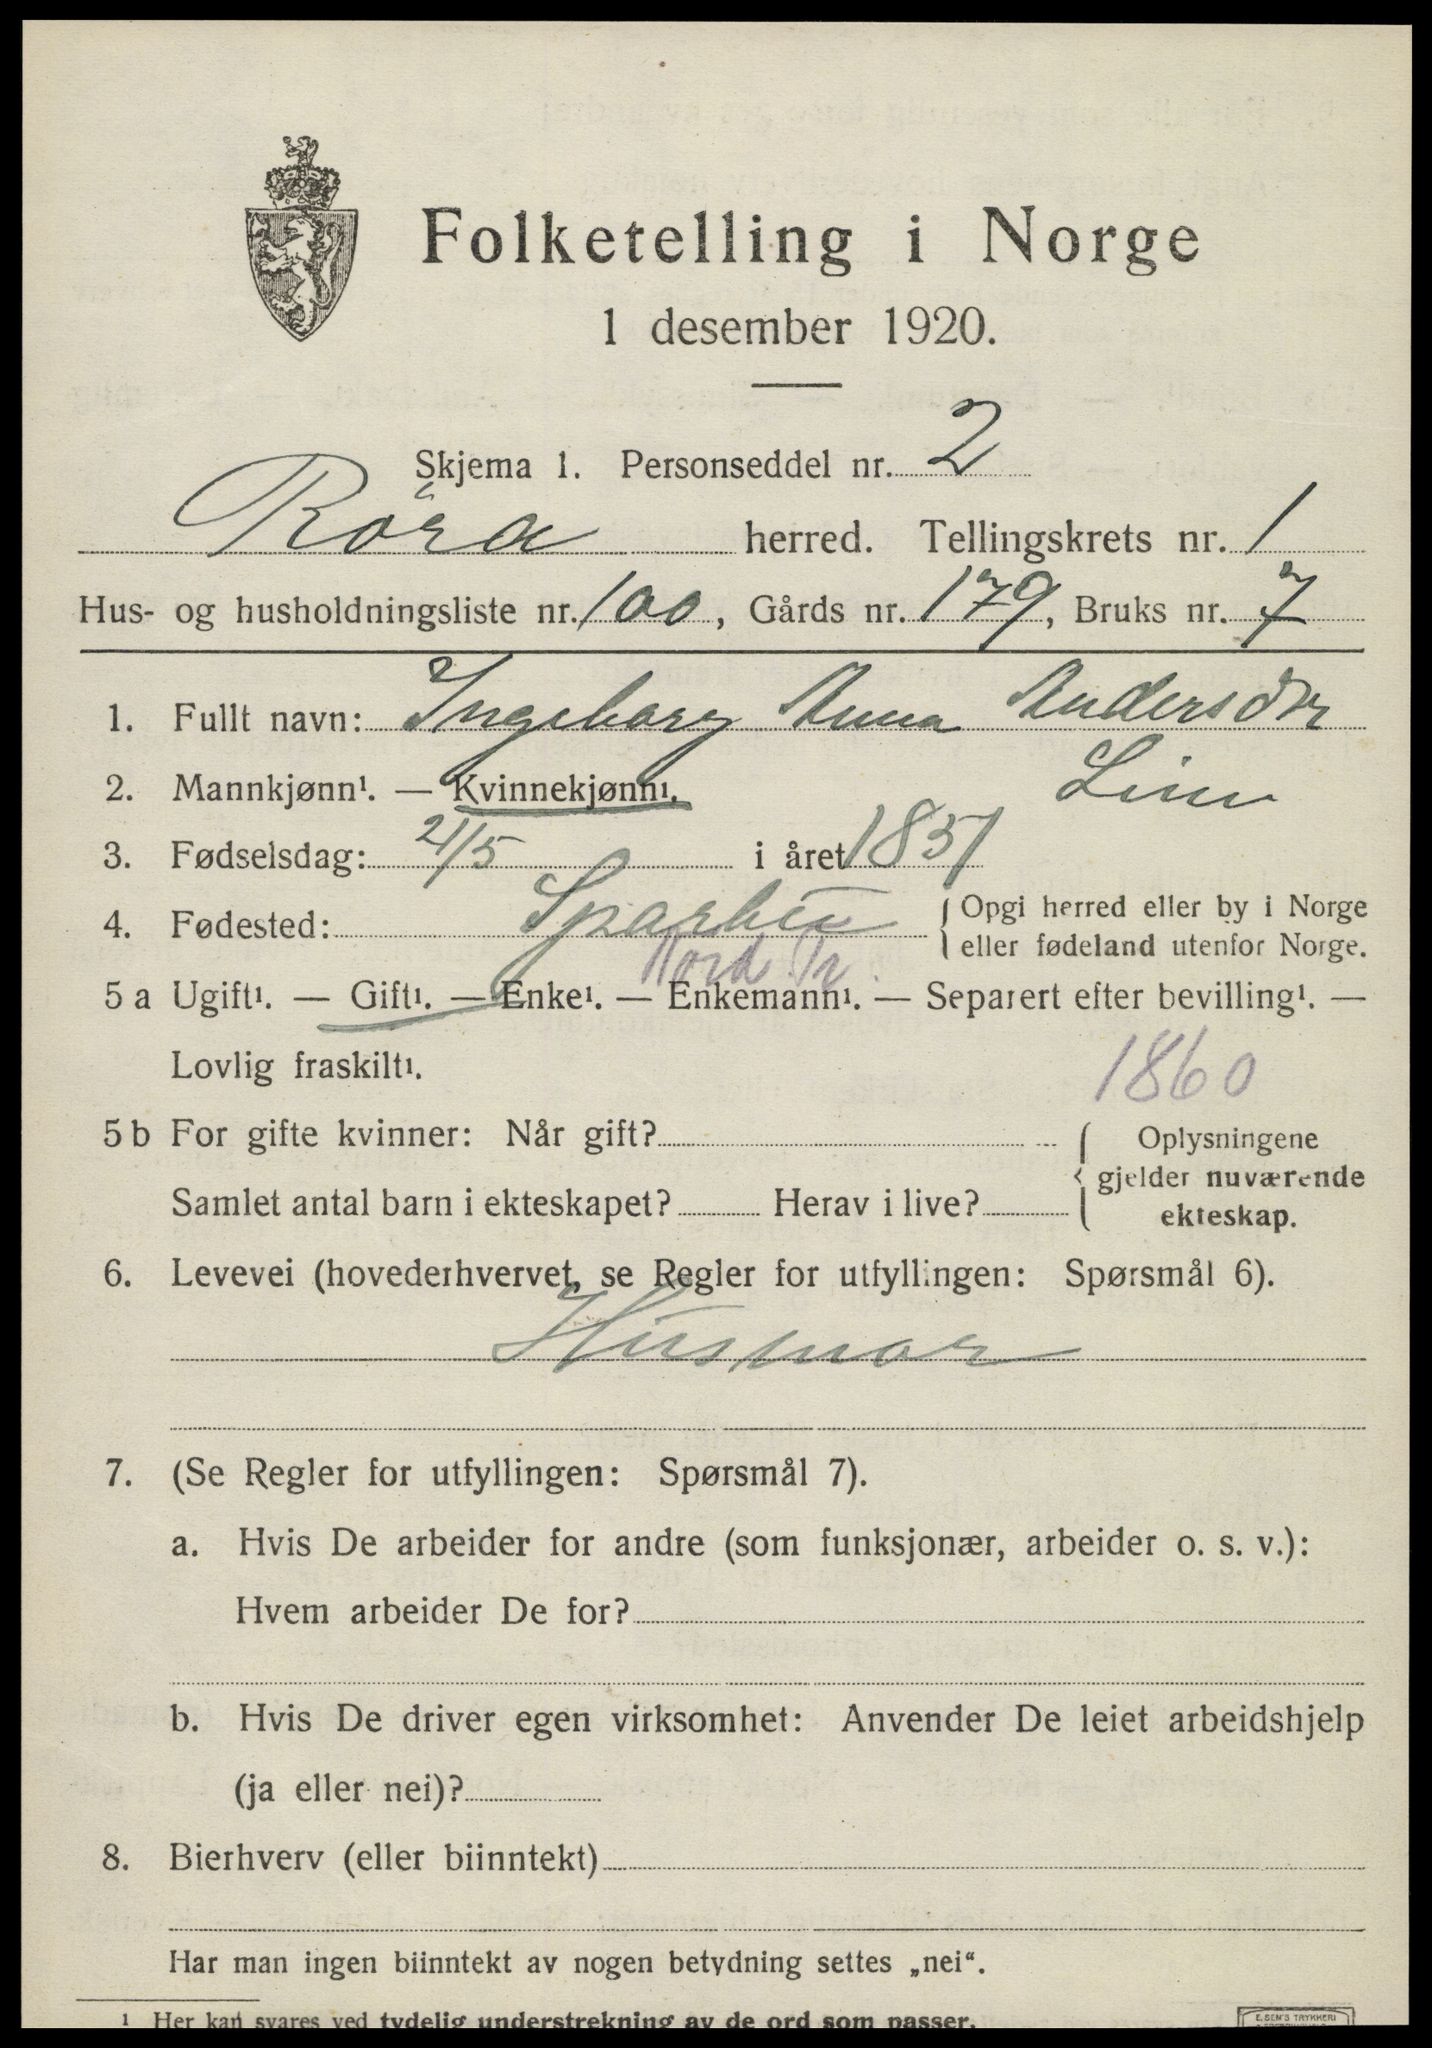 Folketelling i Norge
1 desember 1920.
Skjema 1. Personseddel nr. 2
Röra herred. Tellingskrets nr. 1
Hus- og husholdningsliste nr. 100, Gårds nr. 179, Bruks nr. 7
1. Fullt navn: Ingeborg Anna Andersdtr
2. Mannkjønn¹. — Kvinnekjønn¹.
3. Fødselsdag: 21/5 i året 1851
4. Fødested: Sparbu { Opgi herred eller by i Norge
eller fødeland utenfor Norge.
Nord Tr.
5 a Ugift¹. — Gift¹. — Enke¹. — Enkemann¹. — Separert efter bevilling¹. —
Lovlig fraskilt¹.
1860
5 b For gifte kvinner: Når gift? { Oplysningene
gjelder nuværende
Samlet antal barn i ekteskapet? Herav i live?
ekteskap.
6. Levevei (hovederhvervet, se Regler for utfyllingen: Spørsmål 6).
Husmor
7. (Se Regler for utfyllingen: Spørsmål 7).
a. Hvis De arbeider for andre (som funksjonær, arbeider o. s. v.):
Hvem arbeider De for?
b. Hvis De driver egen virksomhet: Anvender De leiet arbeidshjelp
(ja eller nei)?
8. Bierhverv (eller biinntekt)
Har man ingen biinntekt av nogen betydning settes „nei“.
¹ Her kan svares ved tydelig understrekning av de ord som passer.